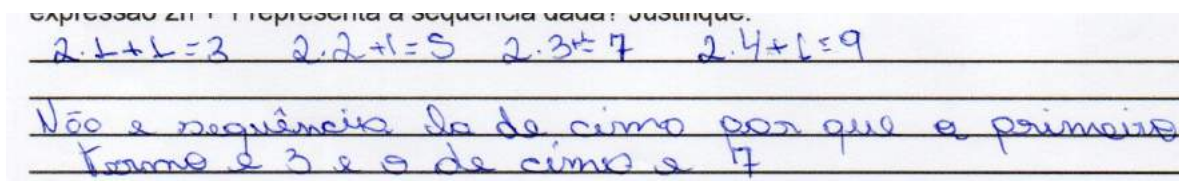 expressão 2n + 1 representa a sequência dada? Justifique.
2.1+1=3 2.2+1=5 2.3+1=7 2.4+1=9
Não e sequência da de cima por que o primeiro
termo e 3 e o de cima e 7